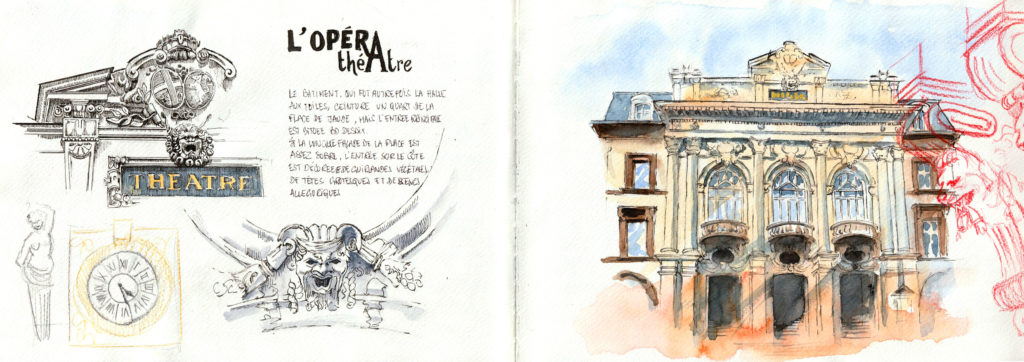 L'OPÉRA
théÂtre
LE BÂTIMENT, QUI FUT AUTREFOIS LA HALLE
AUX TOILES, CEINTURE UN QUART DE LA
PLACE DE JAUDE, MAIS L'ENTRÉE PRINCIPALE
EST SITUÉE BD DESAIX.
SI LA LONGUE FAÇADE DE LA PLACE EST
ASSEZ SOBRE, L'ENTRÉE SUR LE CÔTÉ
EST DÉCORÉE DE GUIRLANDES VÉGÉTALES
DE TÊTES GROTESQUES ET DE SCÈNES
ALLÉGORIQUES
THÉATRE